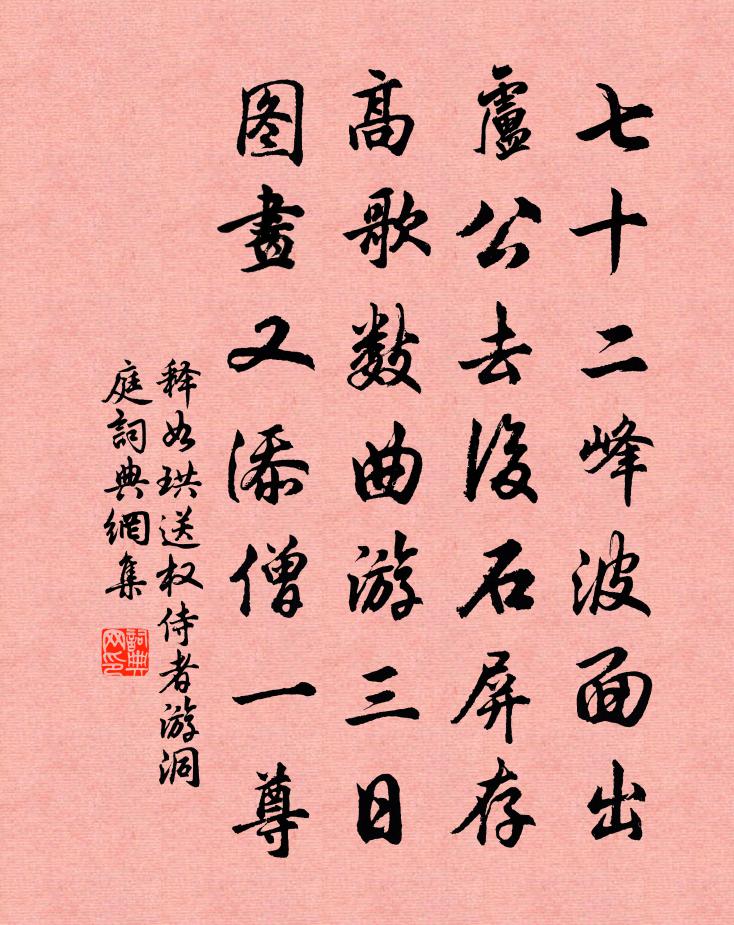 七十二峰波面出
盧公去後石屏存
高歌数曲游三日
图畫又添僧一尊
释如珙送权侍者游洞
庭詞典網集
詞典網印